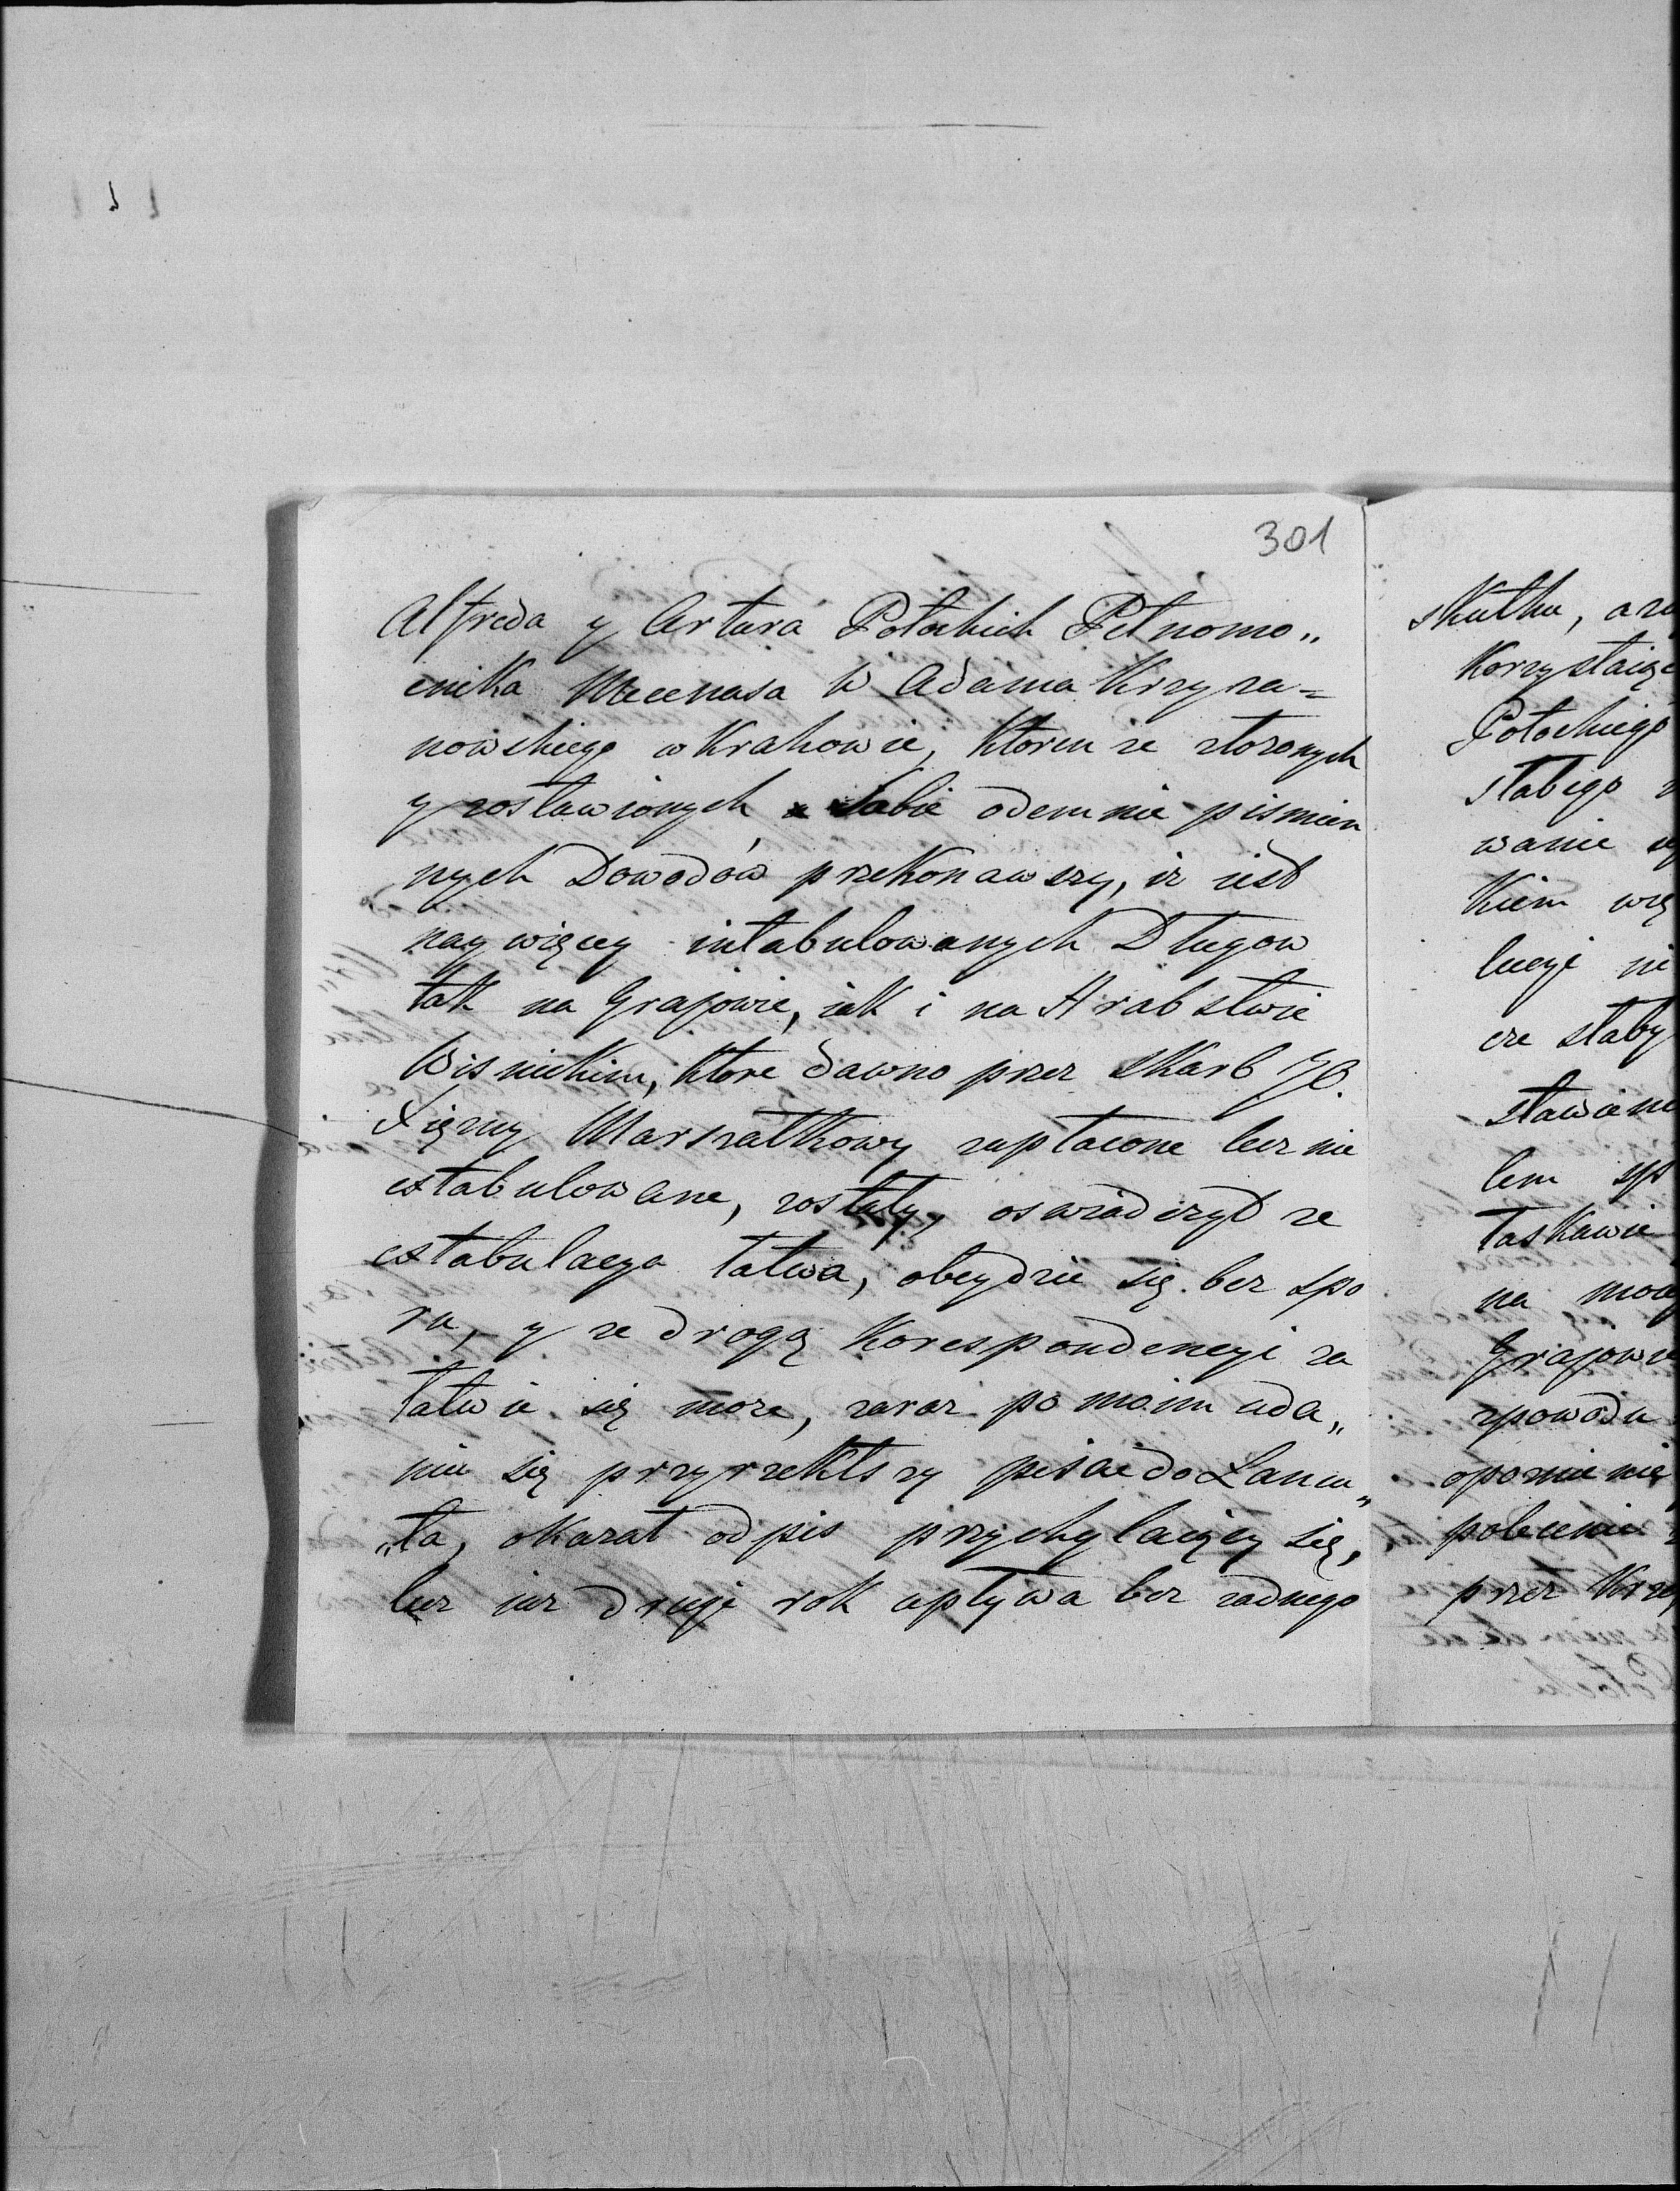 301
Alfreda y Artura Potockich Pełnomo„
cnika Mecenasa W Adama Krzyza=
nowskiego w Krakowie, ktoren ze złozonych
y zostawionych Sobie odemnie pismien
nych Dowodów przekonawszy, iz iest
naywięcey intabulowanych Długow
tak na Grajowie, iak i na Hrabstwie
Wisnickim, ktore dawno przez Skarb JO.
Xięzny Marszałkowy zapłacone lecz nie
extabulowane, zostały, oswiadczył ze
extabulacya łatwa, obeydzie się bez spo
ru, y ze drogą Korespondencyi za
łatwić się moze, zaraz po moim uda„
niu się przyrzekłszy pisać do Łancu„
„ta, okazał odpis przychylaiący się,
lecz iuz drugi rok upływa bez zadnego
skutku, a
Korzystaiąc
Potockiego
słabego
wanie
kiem
lucyi
cze słaby
stawieni
lem
łaskawie
na
Grajow
zpowodu
polecenie
przez Krzy